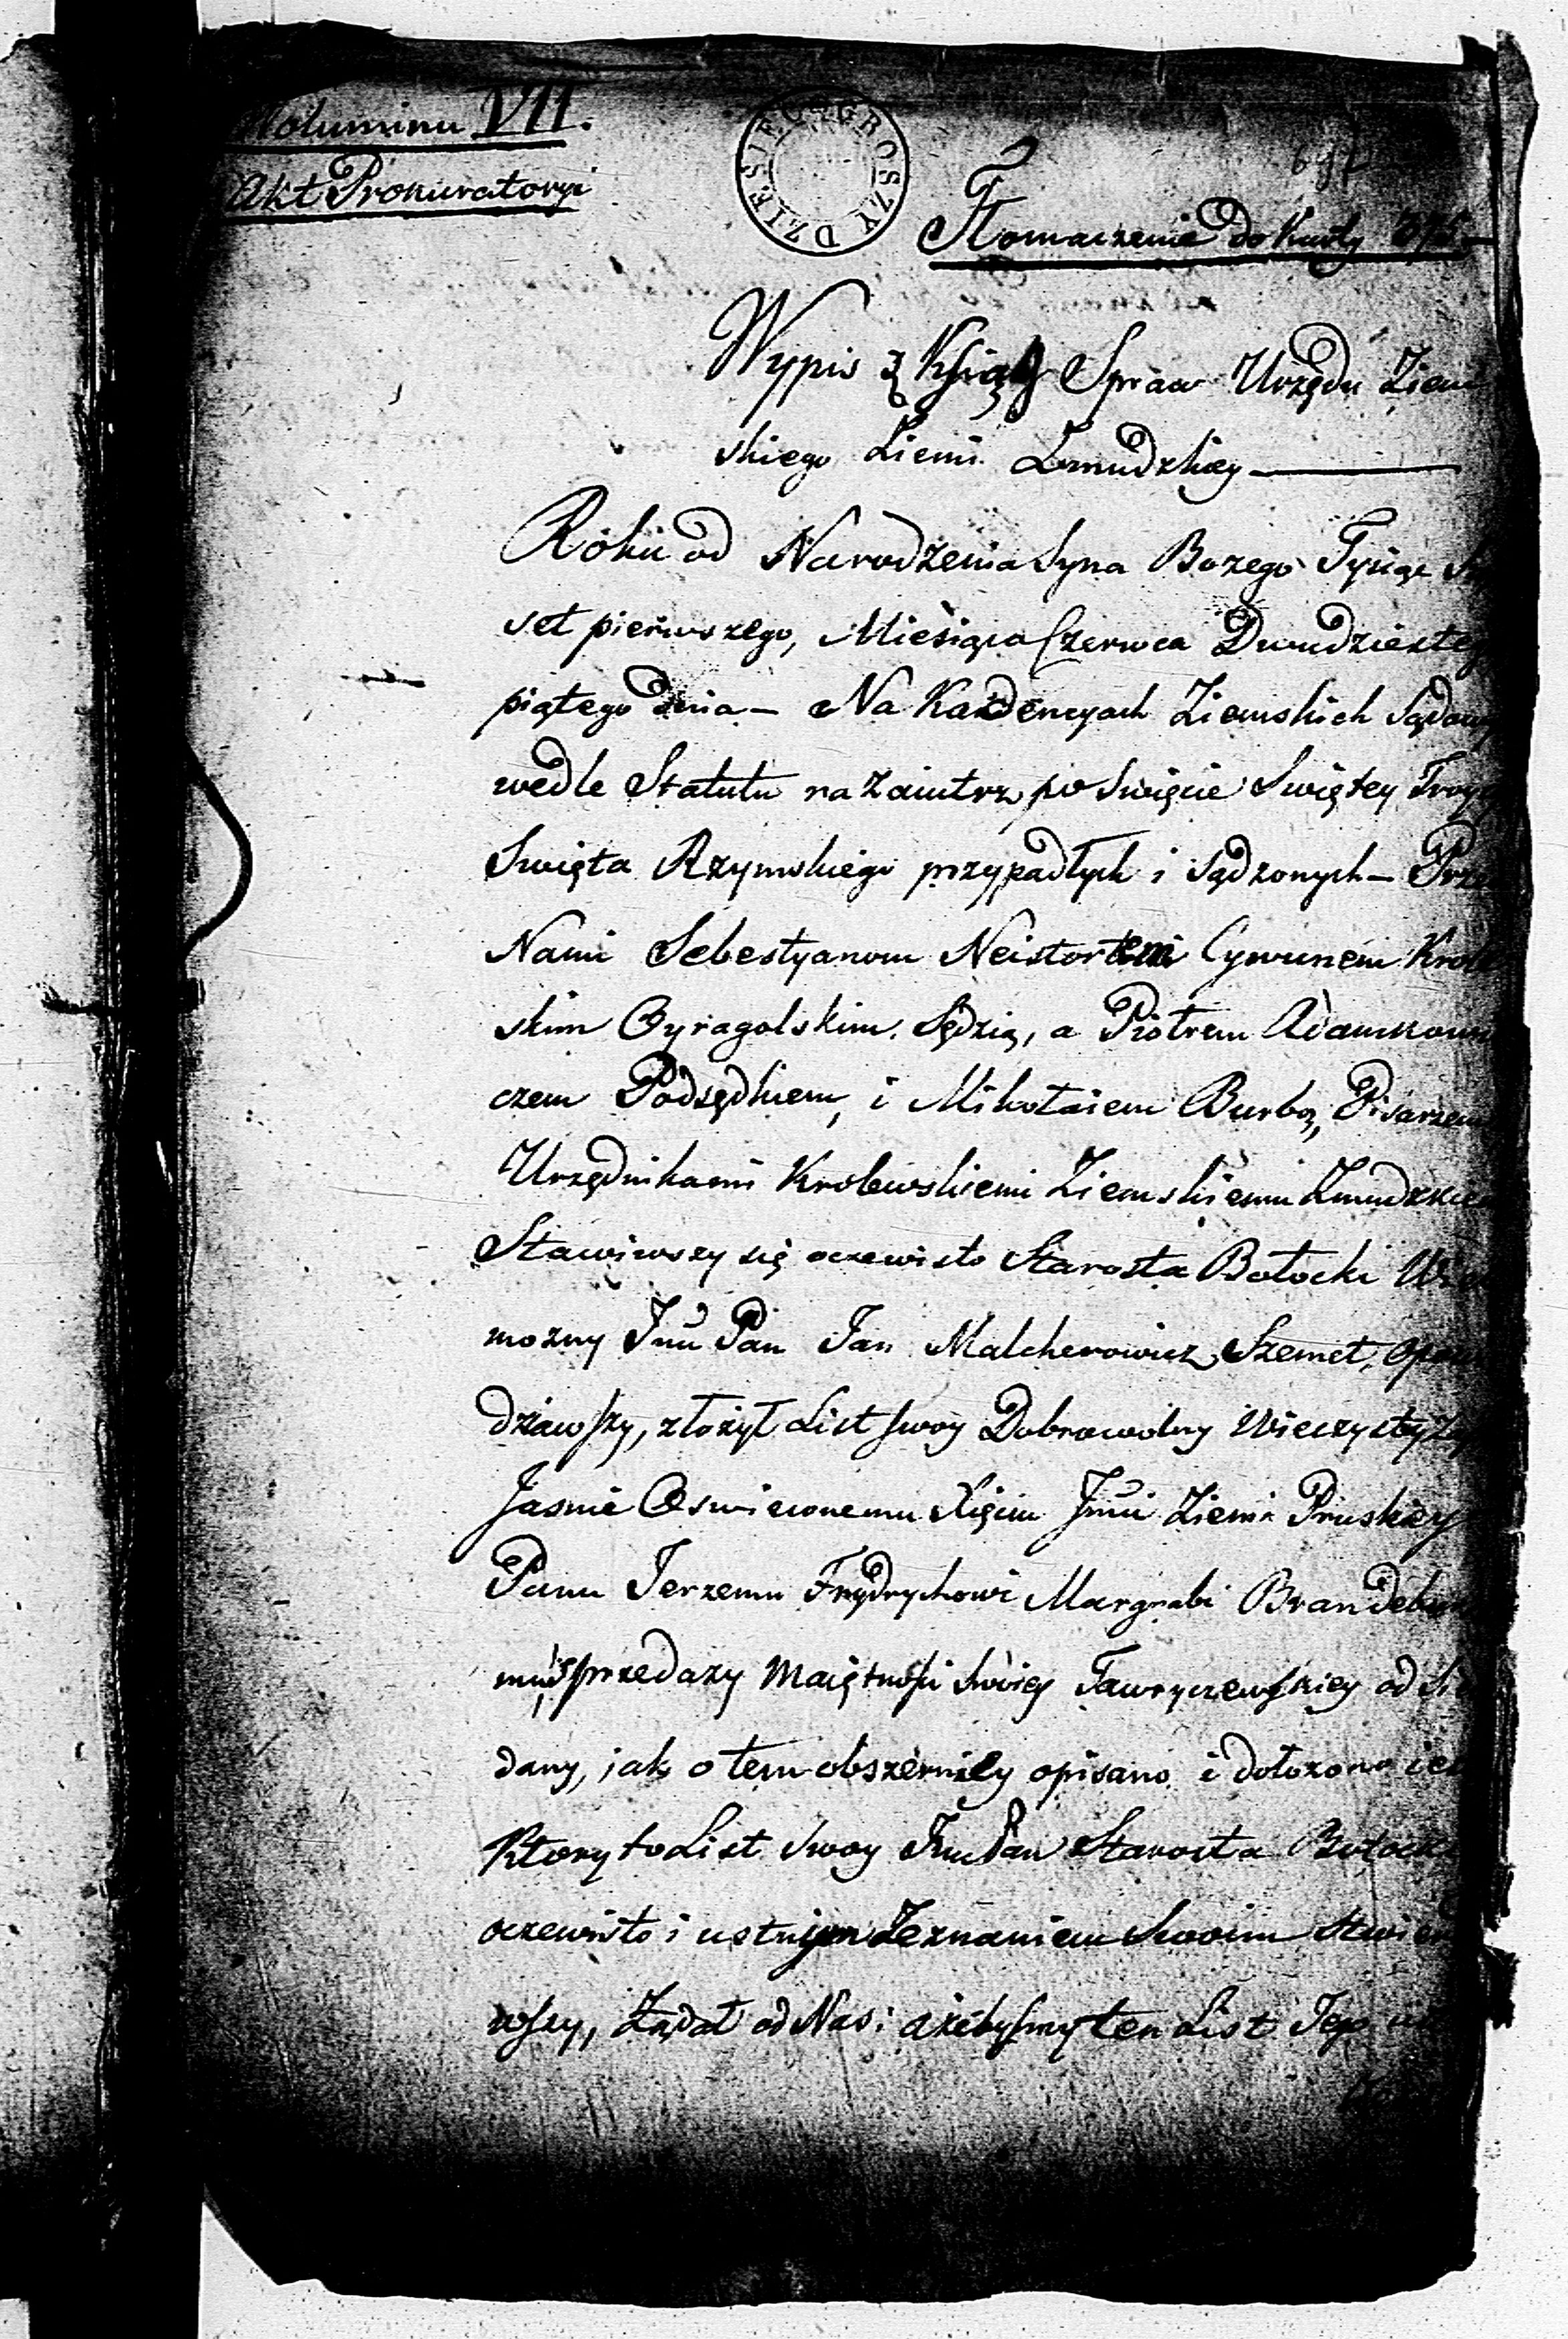 Voluminu VII.
Akt Prokuratoryi
DZIESIĘĆ GROSZY
697
Tłomaczenie do Karty
Wypis z Ksiąg Spraw Urzędu Ziem
skiego Ziemi Zmudzkiey
Roku od Narodzenia Syna Bozego Tysiąc
set pierwszego, Miesiąca Czerwca Dwudzieste
piątego dnia — Na Kadencyach Ziemskich Sądow
wedle Statutu nazaiutrz po Swięcie Swiętey Troy
Swięta Rzymskiego przypadłych i sądzonych — Prze
Nami Sebestyanom Neistortem Cywunem Krole
skim Gyragolskim Sędzią, a Piotrem Adamkowi
czem Podsędkiem, i Mikołaiem Burbą, Pisarzem
Urzędnikami Krolewskiemi Ziemskiemi Zmudzkie
Stawiwszy się oczewisto Starosta Botocki Wie
mozny Jmć Pan Jan Malcherowicz Szemet, opow
dziawszy, złożył List swoy Dobrowolny Wieczysty
Jasnie Oswieconemu Xięciu Jmci Ziemi Pruskiey
Panu Jerzemu Frydrychowi Margrabi Brandebur
mu, sprzedazy Maiętnosci swoiey Tawryczewskiey od Sie
dany, jak o tem obszerniey opisano i dołozono iest
Ktory to List swoy Jmć Pan Starosta Botock
oczewisto i ustnym Zeznaniem Swoim stwier
wszy, Żądał od Nas: ażebysmy ten List Jego